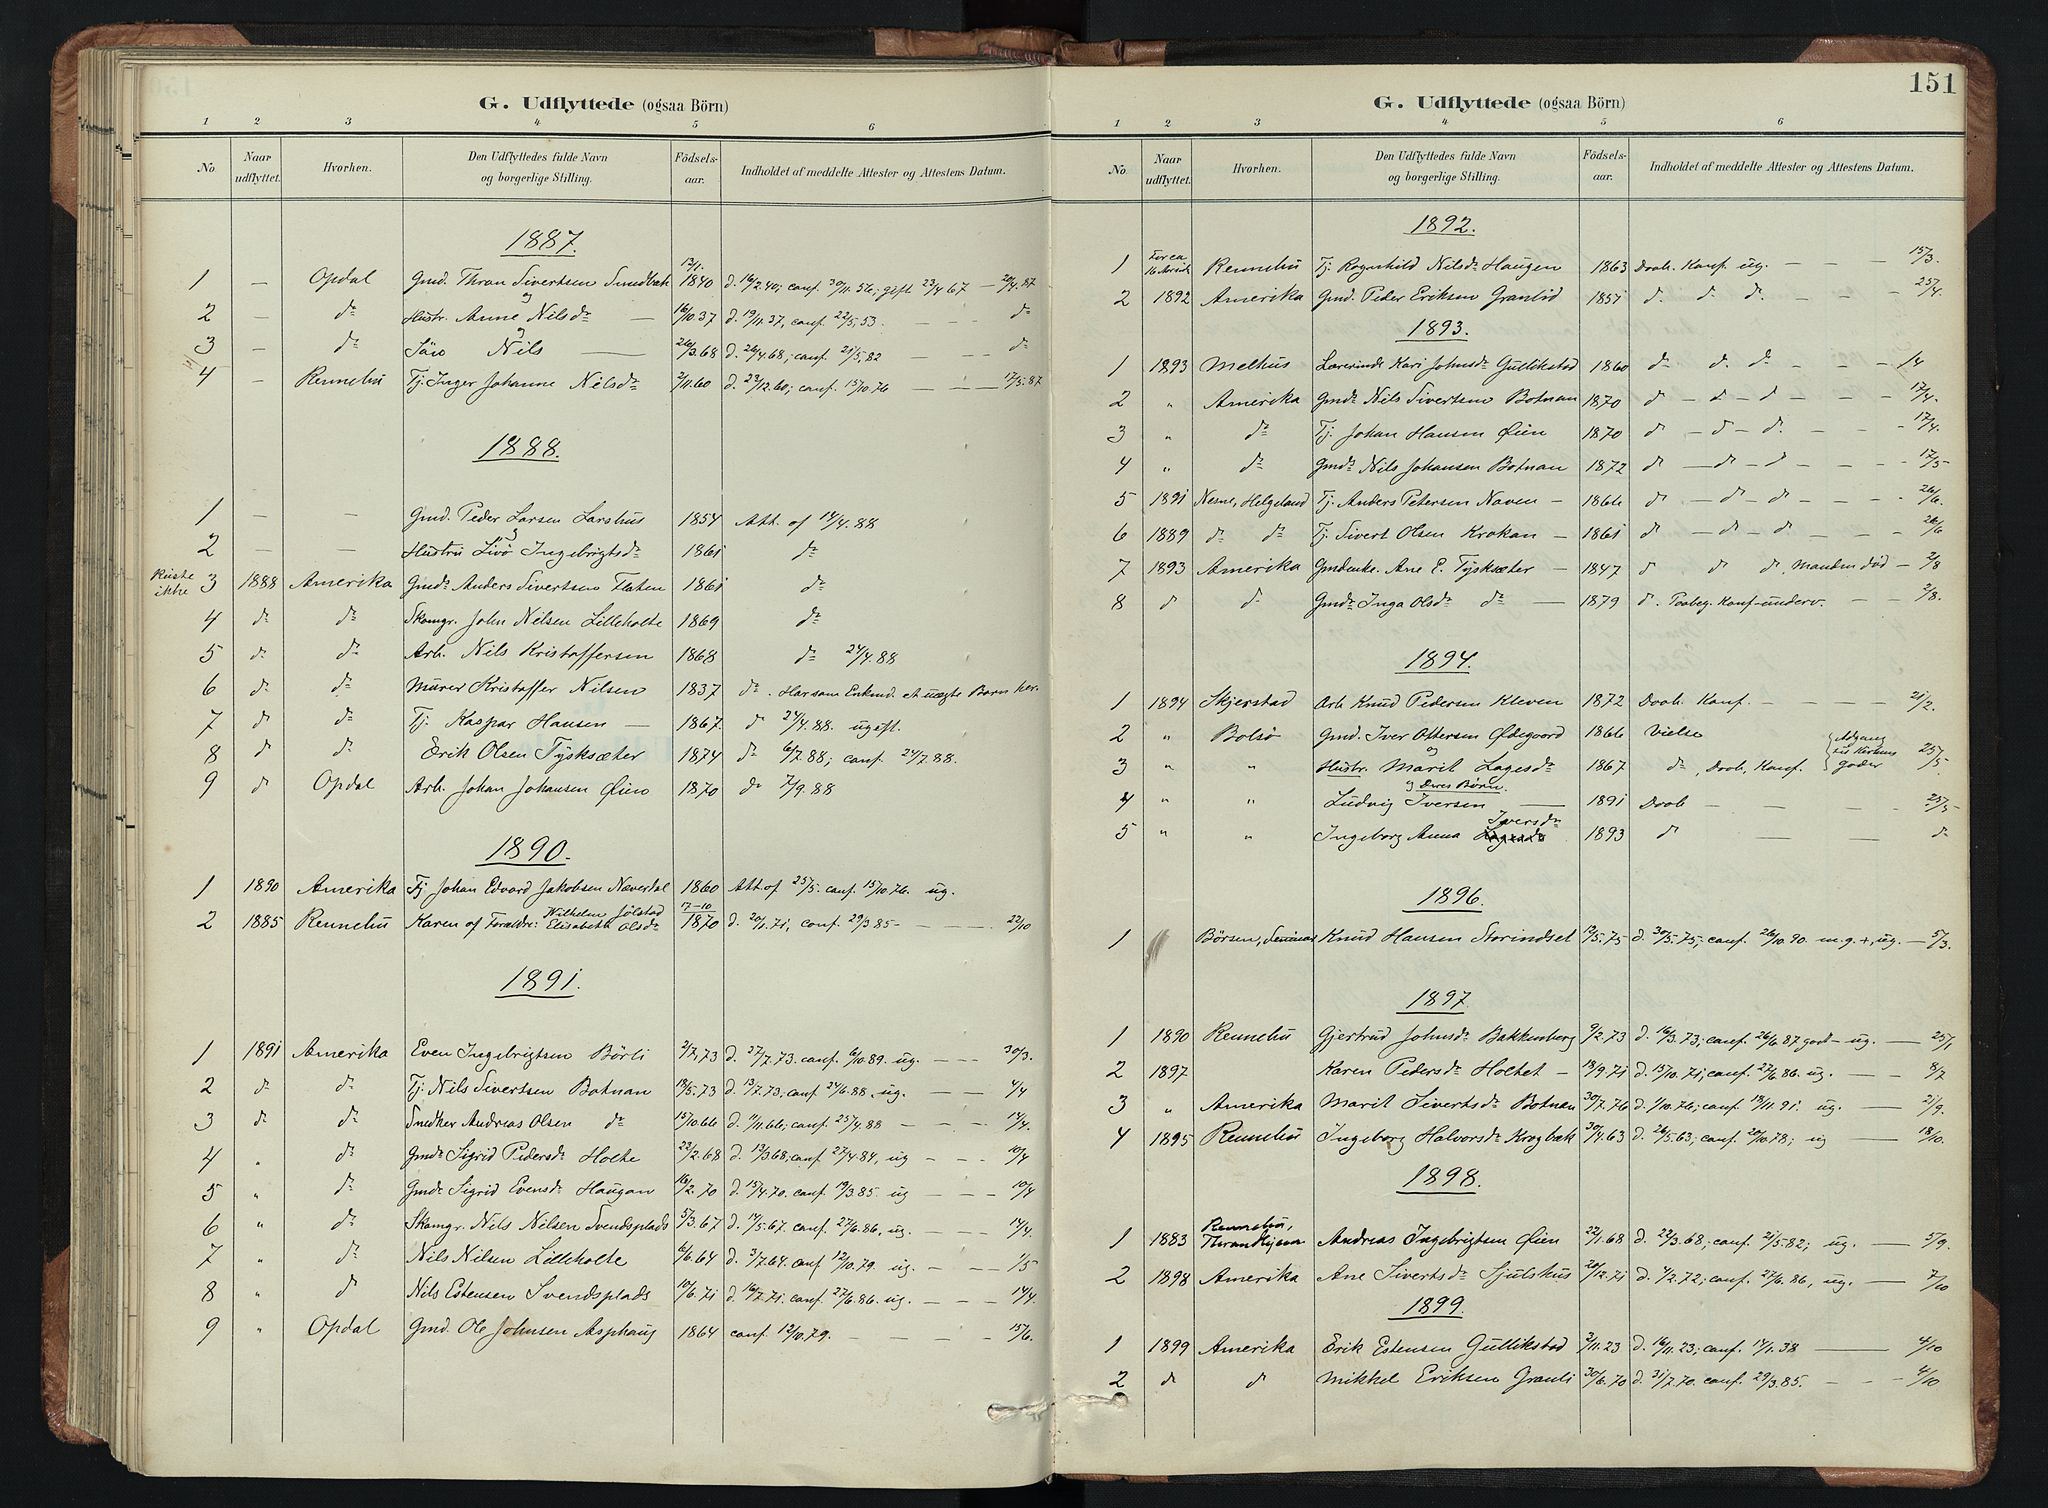 G. Udflyttede (ogsaa Börn)
1 2 3 4 5 6
No Naar udflyttet. Hvorhen. Den Udflyttedes fulde Navn og borgerlige Stilling. Födsels-aar. Indholdet af meddelte Attester og Attestens Datum.
1887.
1 — Opdal Gmd. Thran Sivertsen Smedbæk 12/1. 1840 d. 16/2.40; conf. 30/11.56; gift 23/4 67 — 20/4.87
2 — do Hustr. Anne Nilsdr — 16/10.37 d. 19/11.37, conf. 22/5.53. — — — do
3 — do Sön Nils — 26/3.68 d. 26/4.68; conf. 21/5.82 — — — do
4 — Rennebu Tj. Inger Johanne Nilsdr 2/11.60 d. 23/12.60; conf. 15/10.76 — — — 17/5.87
1888.
1 — — Gmd. Peder Larsen Larshus 1854 Att. af 14/4.88
2 — — Hustru Livö Ingebrigtsdr 1861 do
Reiste ikke 3 1888 Amerika Gmds Anders Sivertsen Flaten 1861 do
4 do do Skomgr. John Nilsen Lilleholte 1869 do
5 do do Arb. Nils Kristoffersen 1868 do 24/4.88
6 do do Murer Kristoffer Nilsen 1837 do. Har som Enkmd. et uægte Barn her.
7 d do Tj. Kaspar Hansen — 1867. d 24/4.88. ugift.
8 d do Erik Olsen Tysksæter 1874 do 6/7.88; conf. 24/7.88.
9 d Opdal Arb. Johan Johansen Øien 1870 do 7/9.88
1890.
1 1890 Amerika Tj. Johan Edvard Jakobsen Næverdal 1860 Att. af 25/5. conf. 15/10.76. ug.
2 1885 Rennebu Karen af Forældre: Vilhelm Jølstad Elisabeth Olsdr 7-10 1870 d. 20/1.71, conf. 29/3.85 — — — 22/10
1891.
1 1891 Amerika Even Ingebrigtsen Börli 2/7.73 d. 27/7.73. conf. 6/10.89. ug. — — 30/3.
2 d do Tj. Nils Sivertsen Botnan 18/5.73 d. 13/7.73; conf. 24/6.88. ug. — — 4/4
3 d do Snedker Andreas Olsen do 15/10.66 d. 11/11.66; conf. 25/7.88 — — 14/4.
4 " do Gmdr Sigrid Pedersdr Holte 23/2.68 d. 13/3.68; conf. 27/4.84, ug — — — 10/4
5 " do Gmdr Sigrid Evensdr Haugan 16/2.70 d. 15/4.70. conf. 19/3.85. ug — — — 10/4
6 " do Skomgr. Nils Nilsen Svendsplads 5/3.67 d. 14/5.67. conf. 27/6.86, ug. — — 14/4.
7 " do Nils Nilsen Lilleholte 6/6.64 d. 3/7.64. conf 12/10.79. ug. — — — 1/5
8 " d Nils Estensen Svendsplads 10/6.71 d. 16/7.71. conf. 27/6.86. ug. — — — 14/4.
9 " Opdal Gmd. Ole Johnsen Asphaug 1864 conf. 12/10.79. — — — — 15/6.
151
G. Udflyttede (ogsaa Börn)
1 2 3 4 5 6
No. Naar udflyttet. Hvorhen. Den Udflyttedes fulde Navn og borgerlige Stilling. Födsels-aar. Indholdet af meddelte Attester og Attestens Datum.
1892.
1 For ca. 16 Aar sid. Rennebu Tj. Ragnhild Nilsdr Haugen 1863 Daab. Konf. ug. — — — 15/3.
2 1892 Amerika Gmd. Peder Eriksen Granlid 1851 d. d. d. — — — 25/4.
1893.
1 1893 Melhus Lærerinde Kari Johnsdr Gullikstad 1860 d. d. d. — — — 1/4
2 " Amerika Gmds Nils Sivertsen Botnan 1870 d — d — d — — — 17/4.
3 " do Tj. Johan Hansen Øien 1870 d — d — d. — — — 17/4.
4 " do Gmds Nils Johansen Botnan 1872 d — d — d — — — 17/5
5 1891 Nesne, Helgeland Tj. Anders Petersen Naven — 1866 d — d — d — — — 26/6.
6 1889 d. d. Tj. Sivert Olsen Krokan — 1861 d — d — d — — — 26/6
7 1893 Amerika Gmdenke. Ane E. Tysksæter — 1847 d d d, Manden död — 2/8
8 d d. Gmdr Inga Olsdr do — 1879 d. Paabeg. Konf-underv. — — 2/8.
1894.
1 1894 Skjerstad Arb. Knud Pedersen Kleven 1872 Daab. Konf. — — — — 21/2.
2 " Bolsö Gmd. Iver Ottersen Ødegaard 1866 Vielse
3 " " og Hustr. Marit Lagesdr 1867 do, Daab, Konf. Adgang til Kirkens goder 25/5.
4 " " og Deres Börn. Ludvig Iversen — 1891 Daab — — — 25/5
5 " " Ingeborg Anna Iversdr 1893 d — — d
1896.
1 Börsen, Seminar Knud Hansen Storindset 13/5.75 d. 30/5.75; conf. 26/10.90. m.g.+, ug. — 5/3.
1897.
1 1890 Rennebu Gjertrud Johnsdr Bakkenberg 9/2.73 d. 16/3.73; conf. 26/6.87 god — ug. — 25/1
2 1897 Karen Pedersdr Holtet — 18/9.71 d. 15/10.71; conf. 27/6.86. ug. — 8/7
3 " Amerika Marit Sivertsdr Botnan 30/7.76 d. 1/10.76; conf. 18/11.91. ug. — 21/9.
4 1895 Rennebu Ingeborg Halvorsdr Krogbæk 30/4.63 d. 26/5.63; conf. 20/10.78; ug — 18/10.
1898.
1 1883 Rennebu, Throndhjem Andreas Ingebrigtsen Øien 22/1.68 d. 22/3.68; conf. 21/5.82; ug. — 5/9.
2 1898 Amerika Ane Sivertsdr Sjulshus 20/12.71 d. 4/2.72; conf. 27/6.86, ug. — — 7/10
1899.
1 1899 Amerika Erik Estensen Gullikstad 2/11.23 d. 16/11.23; conf. 14/1.38 — 4/10
2 d d Mikkel Eriksen Granli 30/6.70 d. 31/7.70. conf. 29/3.85. — — — 4/10